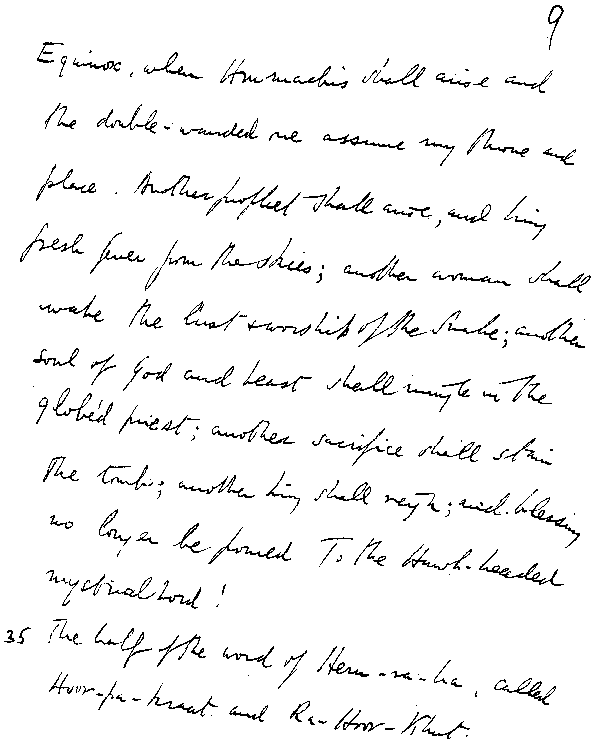 9
Equinox, when Hrumachis shall arise and
the double-wanded one assume my throne and
place. Another prophet shall arise, and bring
fresh fever from the skies; another woman shall
wake the lust & worship of the Snake; another
soul of God and beast shall mingle in the
globéd priest; another sacrifice shall stain
the tomb; another king shall reign; and blessing
no longer be poured To the Hawk-headed
mystical Lord!
35 The half of the word of Heru-ra-ha, called
Hoor-pa-kraat and Ra-Hoor-Khut.